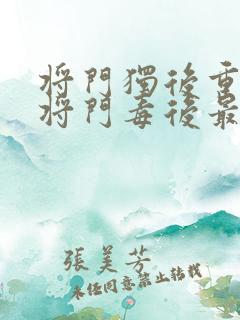 将門獨後重
将門毒後最
張美芳
未经同意禁止转载